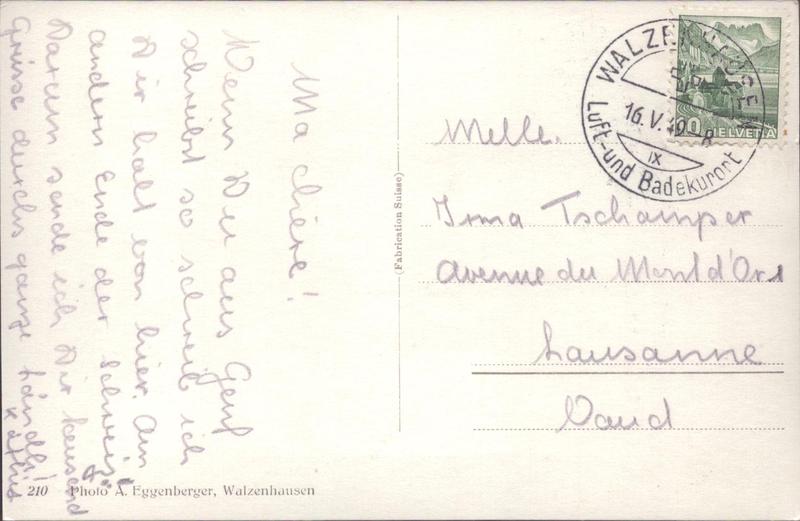 Ma chère!
Wenn Du aus Genf
schreibst so schreib ich
Dir halt von hier. Am
andern Ende der Schweiz.
Darum sende ich Dir tausend
Grüsse durchs ganze Ländli!
WALZENHAUSEN
16. V. 49 - 8
IX
Luft- und Badekurort
HELVETIA
Melle.
Irma Tschamper
Avenue du Mont d'Or 1
Lausanne
Vaud
(Fabrication Suisse)
210 Photo A. Eggenberger, Walzenhausen